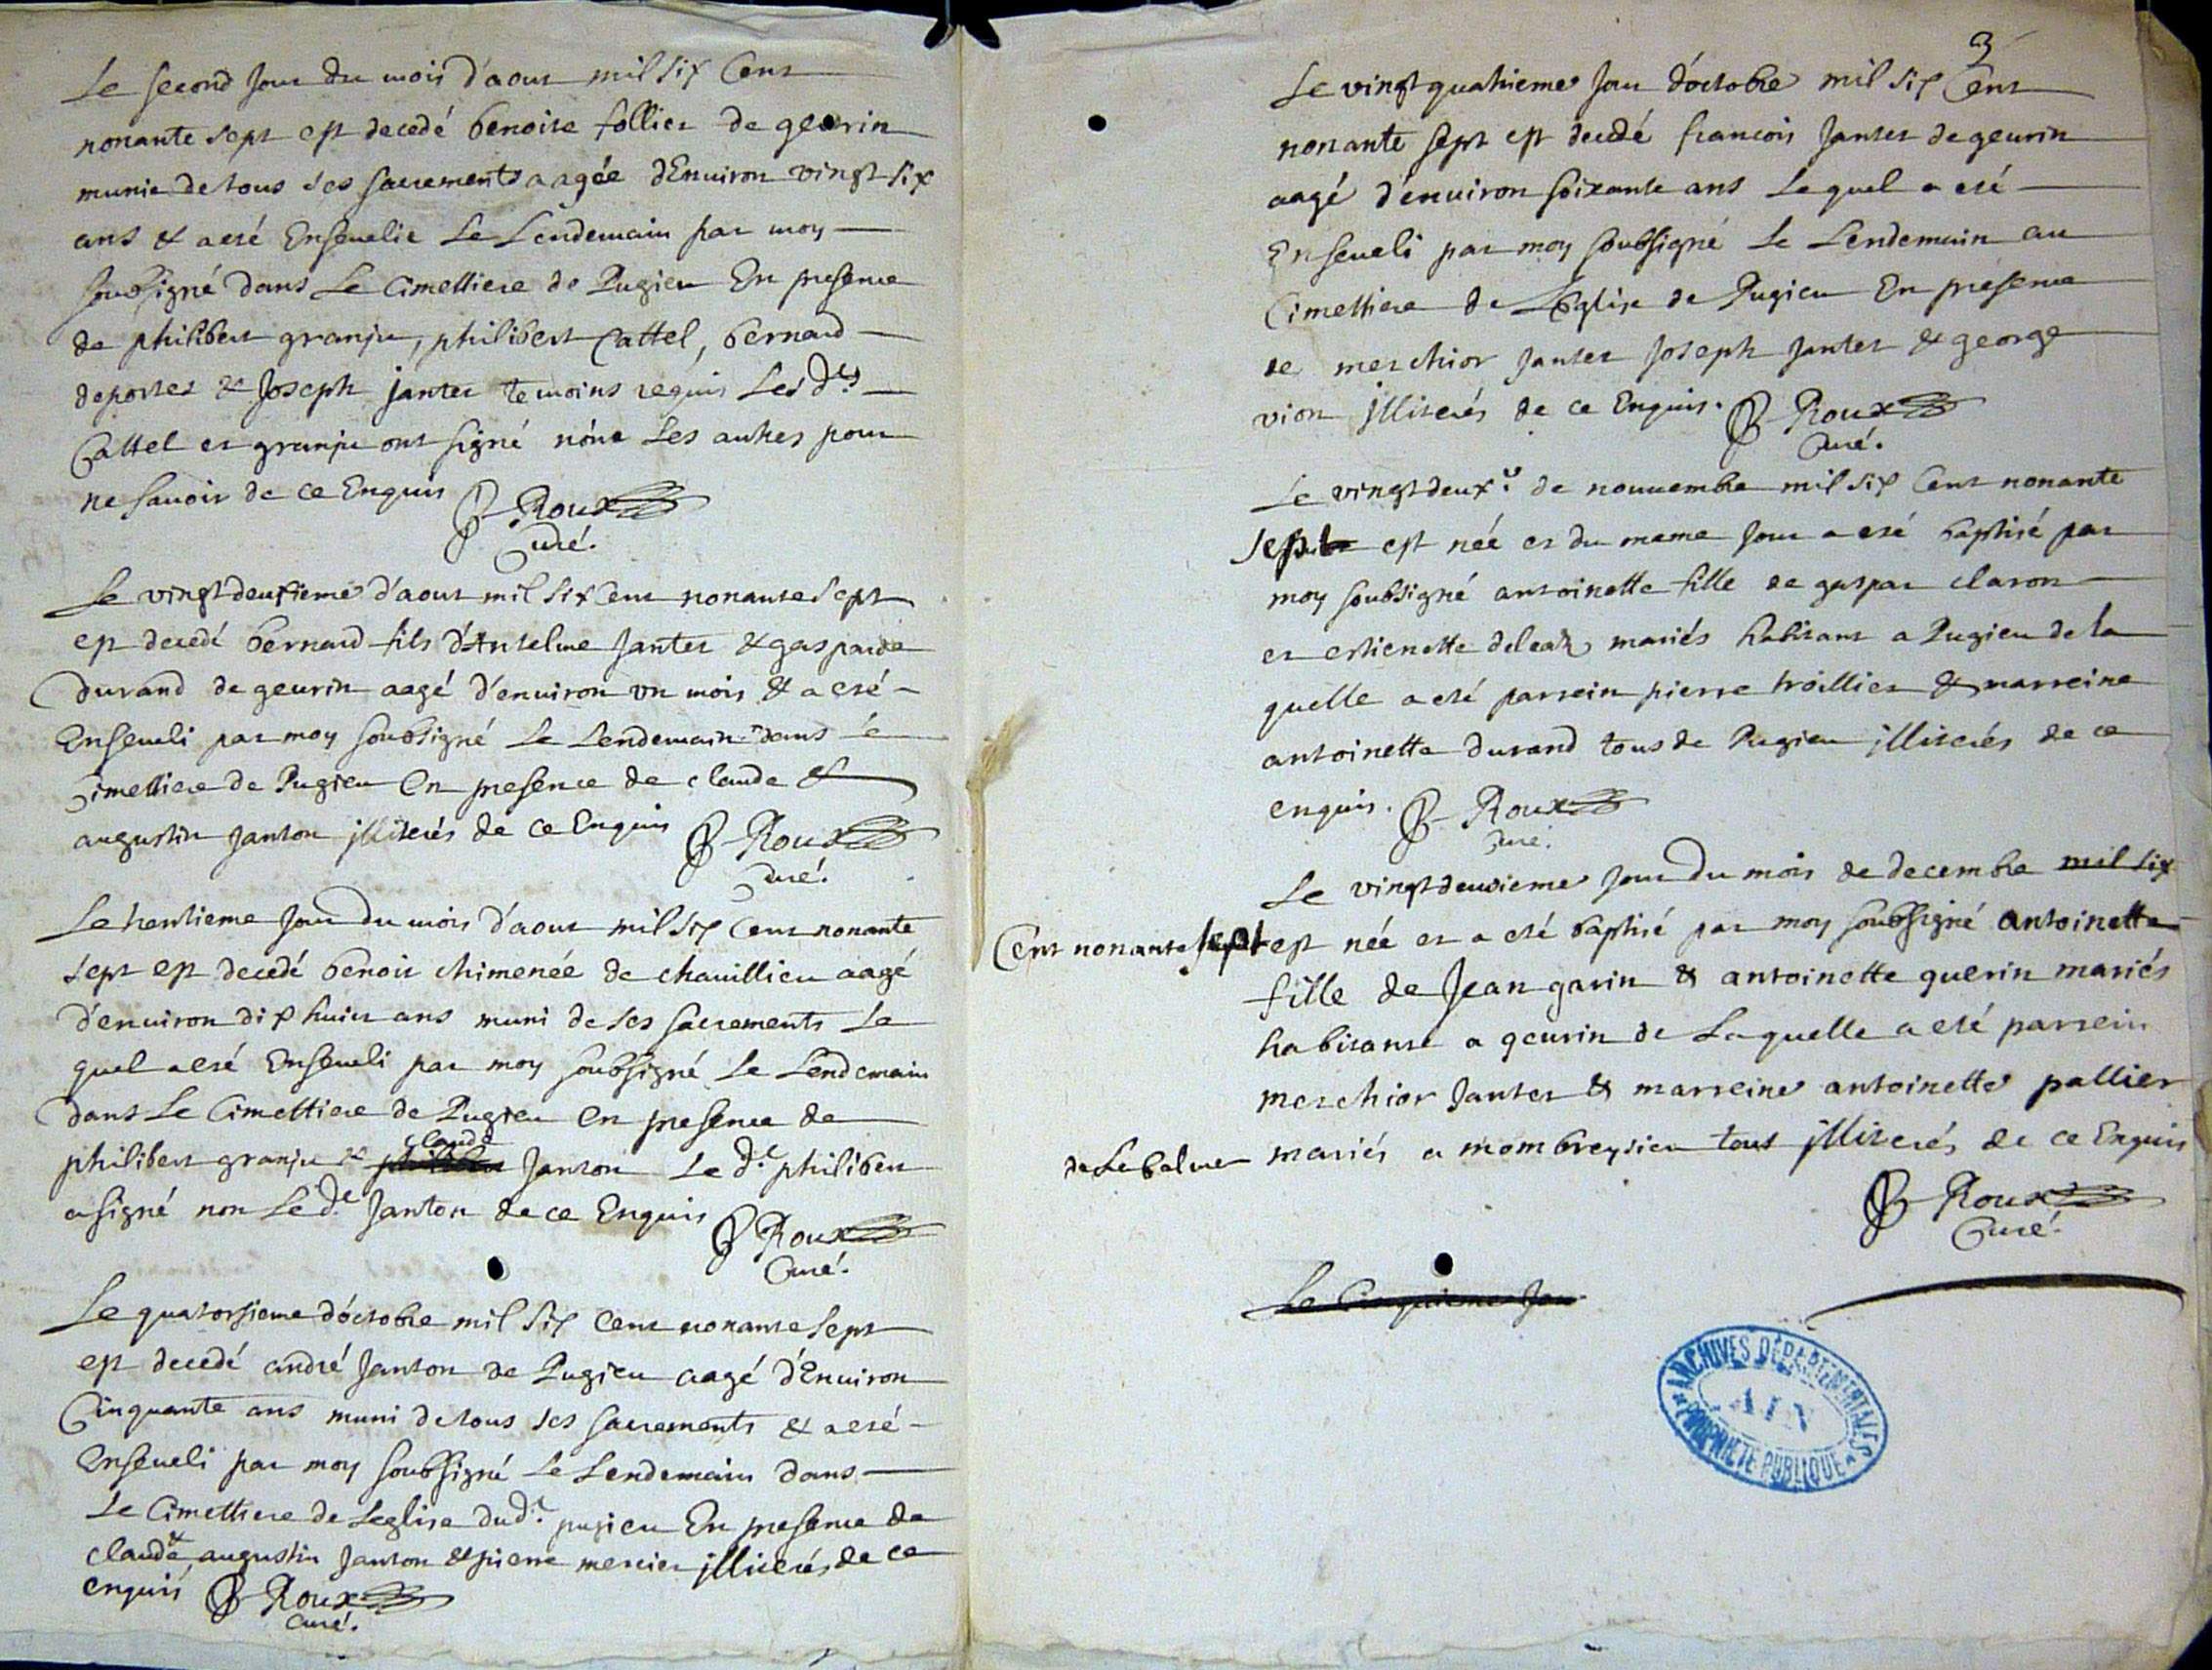 Le second Jour du mois d'aout mil six Cent
nonante sept est decedé benoite follier de geurin
munie de tous ses sacrements aagée d'Enuiron vingt six
ans & a eté Enseuelie Le Lendemain par moy
soubsigné dans Le Cimettiere de Pugieu En presence
de philibert granju, philibert Cattel, bernard
deportes & Joseph janter temoins requis Les dts
Cattel et granju ont signé non Les autres pour
ne sauoir de ce Enquis B Roux
Curé.
Le vingt deuxieme d'aout mil six Cent nonante sept
est decedé bernard fils d'Antelme Janter & gasparde
durand de geurin aagé d'enuiron vn mois & a eté
Enseueli par moy soubsigné Le Lendemain dans Le
Cimettiere de Pugieu En presence de claude &
augustin Janton illiterés de ce Enquis B Roux
Curé.
Le trentieme Jour du mois d'aout mil six Cent nonante
sept est decedé benoit chimenée de chauillieu aagé
d'enuiron dix huict ans muni de ses sacrements Le
quel a eté Enseueli par moy soubsigné Le Lendemain
dans Le Cimettiere de Pugieu En presence de
philibert granju & philibert claude Janton Le dt philibert
a signé non Le dt Janton de ce Enquis B Roux
Curé.
Le quatorsieme d'octobre mil six Cent nonante sept
est decedé andré Janton de Pugieu aagé d'Enuiron
Cinquante ans muni de tous ses sacrements & a eté
Enseueli par moy soubsigné Le Lendemain dans
Le Cimettiere de Leglise dudt pugieu En presence de
claude & augustin Janton & pierre mercier illiterés de ce
enquis B Roux
Curé.
3
Le vingt quatrieme Jour d'octobre mil six Cent
nonante sept est decedé francois Janter de geurin
aagé d'enuiron soixante ans Le quel a eté
Enseueli par moy soubsigné Le Lendemain au
Cimettiere de LEglise de Pugieu En presence
de merchior Janter Joseph Janter & george
vion illiterés de ce Enquis. B Roux
Curé.
Le vingt deuxe de nouuembre mil six Cent nonante
sept est née et du meme Jour a eté baptisé par
moy soubsigné antoinette fille de gaspar claron
et estienette mariés habitant a Pugieu de la
quelle a eté parrein pierre trollier & marreine
antoinette durand tous de Pugieu illiterés de ce
enquis. B Roux
Curé.
Le vingt deuxieme Jour du mois de decembre mil six
Cent nonante sept est née et a eté baptisé par moy soubsigné antoinette
fille de Jean garin & antoinette guerin mariés
habitant a geurin de Laquelle a eté parrein
merchior Janter & marreine antoinette pallier
de Lebalme mariés a mombreysieu tous illiterés de ce Enquis
B Roux
Curé.
Le Cinquieme Jou
ARCHIVES DÉPARTEMENTALES
AIN
PROPRIÉTÉ PUBLIQUE